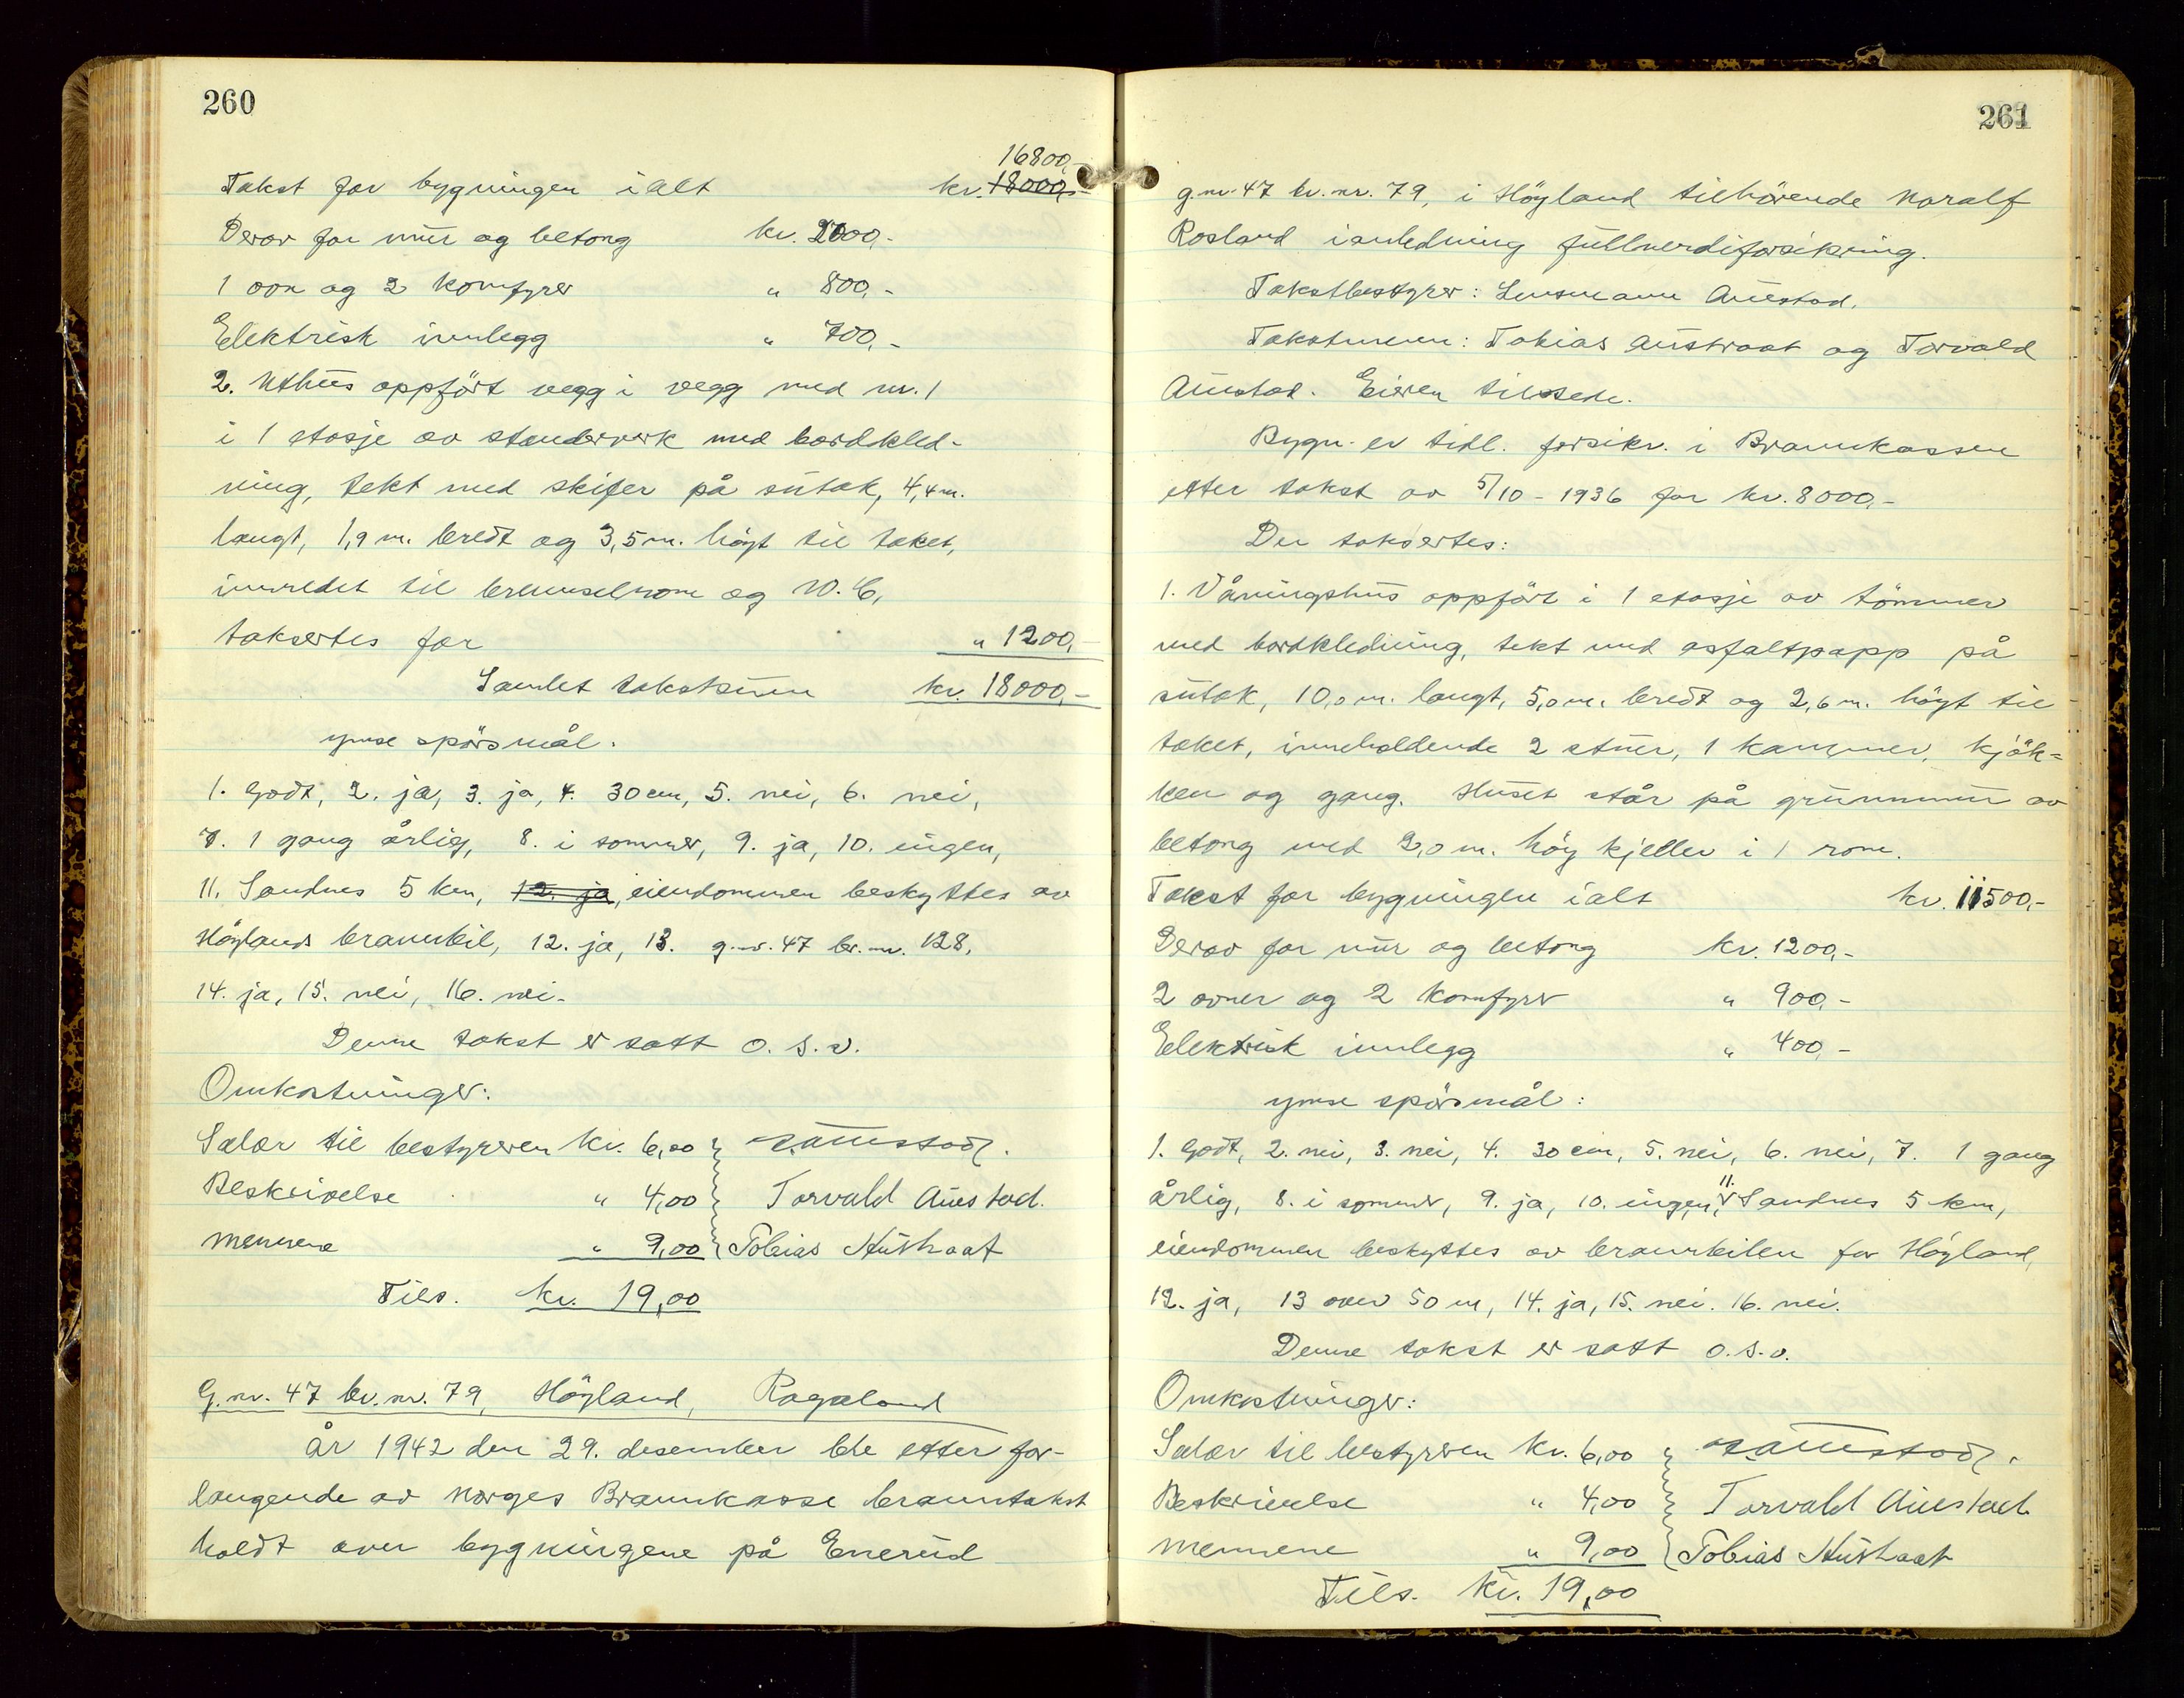 260
16800,-
Takst for bygningen ialt kr. 18000,-
Derav for mur og betong kr. 2000,-
1 ovn og 2 komfyrer " 800,-
Elektrisk innlegg " 700,-
2. Uthus oppført vegg i vegg med nr. 1
i 1 etasje av stenderverk med bordkled-
ning, tekt med skifer på sutak, 4,4 m.
langt, 1,9 m. bredt og 3,5 m. høgt til taket,
innredet til brenselrom og W.C.
taksertes for " 1200,-
Samlet takstsum kr. 18000,-
Ymse spörsmål.
1. Godt, 2. ja, 3. ja, 4. 30 cm, 5. nei, 6. nei,
7. 1 gang årlig, 8. i sommer, 9. ja, 10. ingen,
11. Sandnes 5 km, 12. ja, eiendommen beskyttes av
Höylands brannbil, 12. ja, 13. g.nr. 47 br.nr. 128,
14. ja, 15. nei, 16. nei.
Denne takst er satt o.s.v.
Omkostninger:
Salær til bestyreren kr. 6,00 Auestad.
Beskrivelse " 4,00 Torvald Auestad.
Mennene " 9,00 Tobias Austraat
Tils. kr. 19,00
G.nr. 47 br.nr. 79, Höyland, Rogaland
År 1942 den 29. desember ble etter for-
langende av Norges Brannkasse branntakst
holdt over bygningene på Enerud
261
g.nr. 47 br.nr. 79, i Höyland tilhörende Noralf
Rosland ianledning fullverdiforsikring.
Takstbestyrer: Lensmann Auestad.
Takstmenn: Tobias Austraat og Torvald
Auestad. Eieren tilstede.
Bygn. er tidl. forsikr. i Brannkassen
etter takst av 5/10 - 1936 for kr. 8000,-
Der taksertes:
1. Våningshus oppfört i 1 etasje av tömmer
med bordkledning, tekt med asfaltpapp på
sutak, 10,0 m. langt, 5,0 m. bredt og 2,6 m. högt til
taket, inneholdende 2 stuer, 1 kammer, kjök-
ken og gang. Huset står på grunnmur av
betong med 2,0 m. høg kjeller i 1 rom.
Takst for bygningen ialt kr. 11500,-
Derav for mur og betong kr. 1200,-
2 ovner og 2 komfyrer " 900,-
Elektrisk innlegg " 400,-
Ymse spörsmål:
1. Godt, 2. nei, 3. nei, 4. 30 cm, 5. nei, 6. nei, 7. 1 gang
årlig, 8. i sommer, 9. ja, 10. ingen, 11. Sandnes 5 km,
eiendommen beskyttes av brannbilen for Höyland,
12. ja, 13 over 50 m, 14. ja, 15. nei. 16. nei.
Denne takst er satt o.s.v.
Omkostninger:
Salær til bestyreren kr. 6,00 Auestad.
Beskrivelse " 4,00 Torvald Auestad
Mennene " 9,00 Tobias Austraat
Tils. kr. 19,00